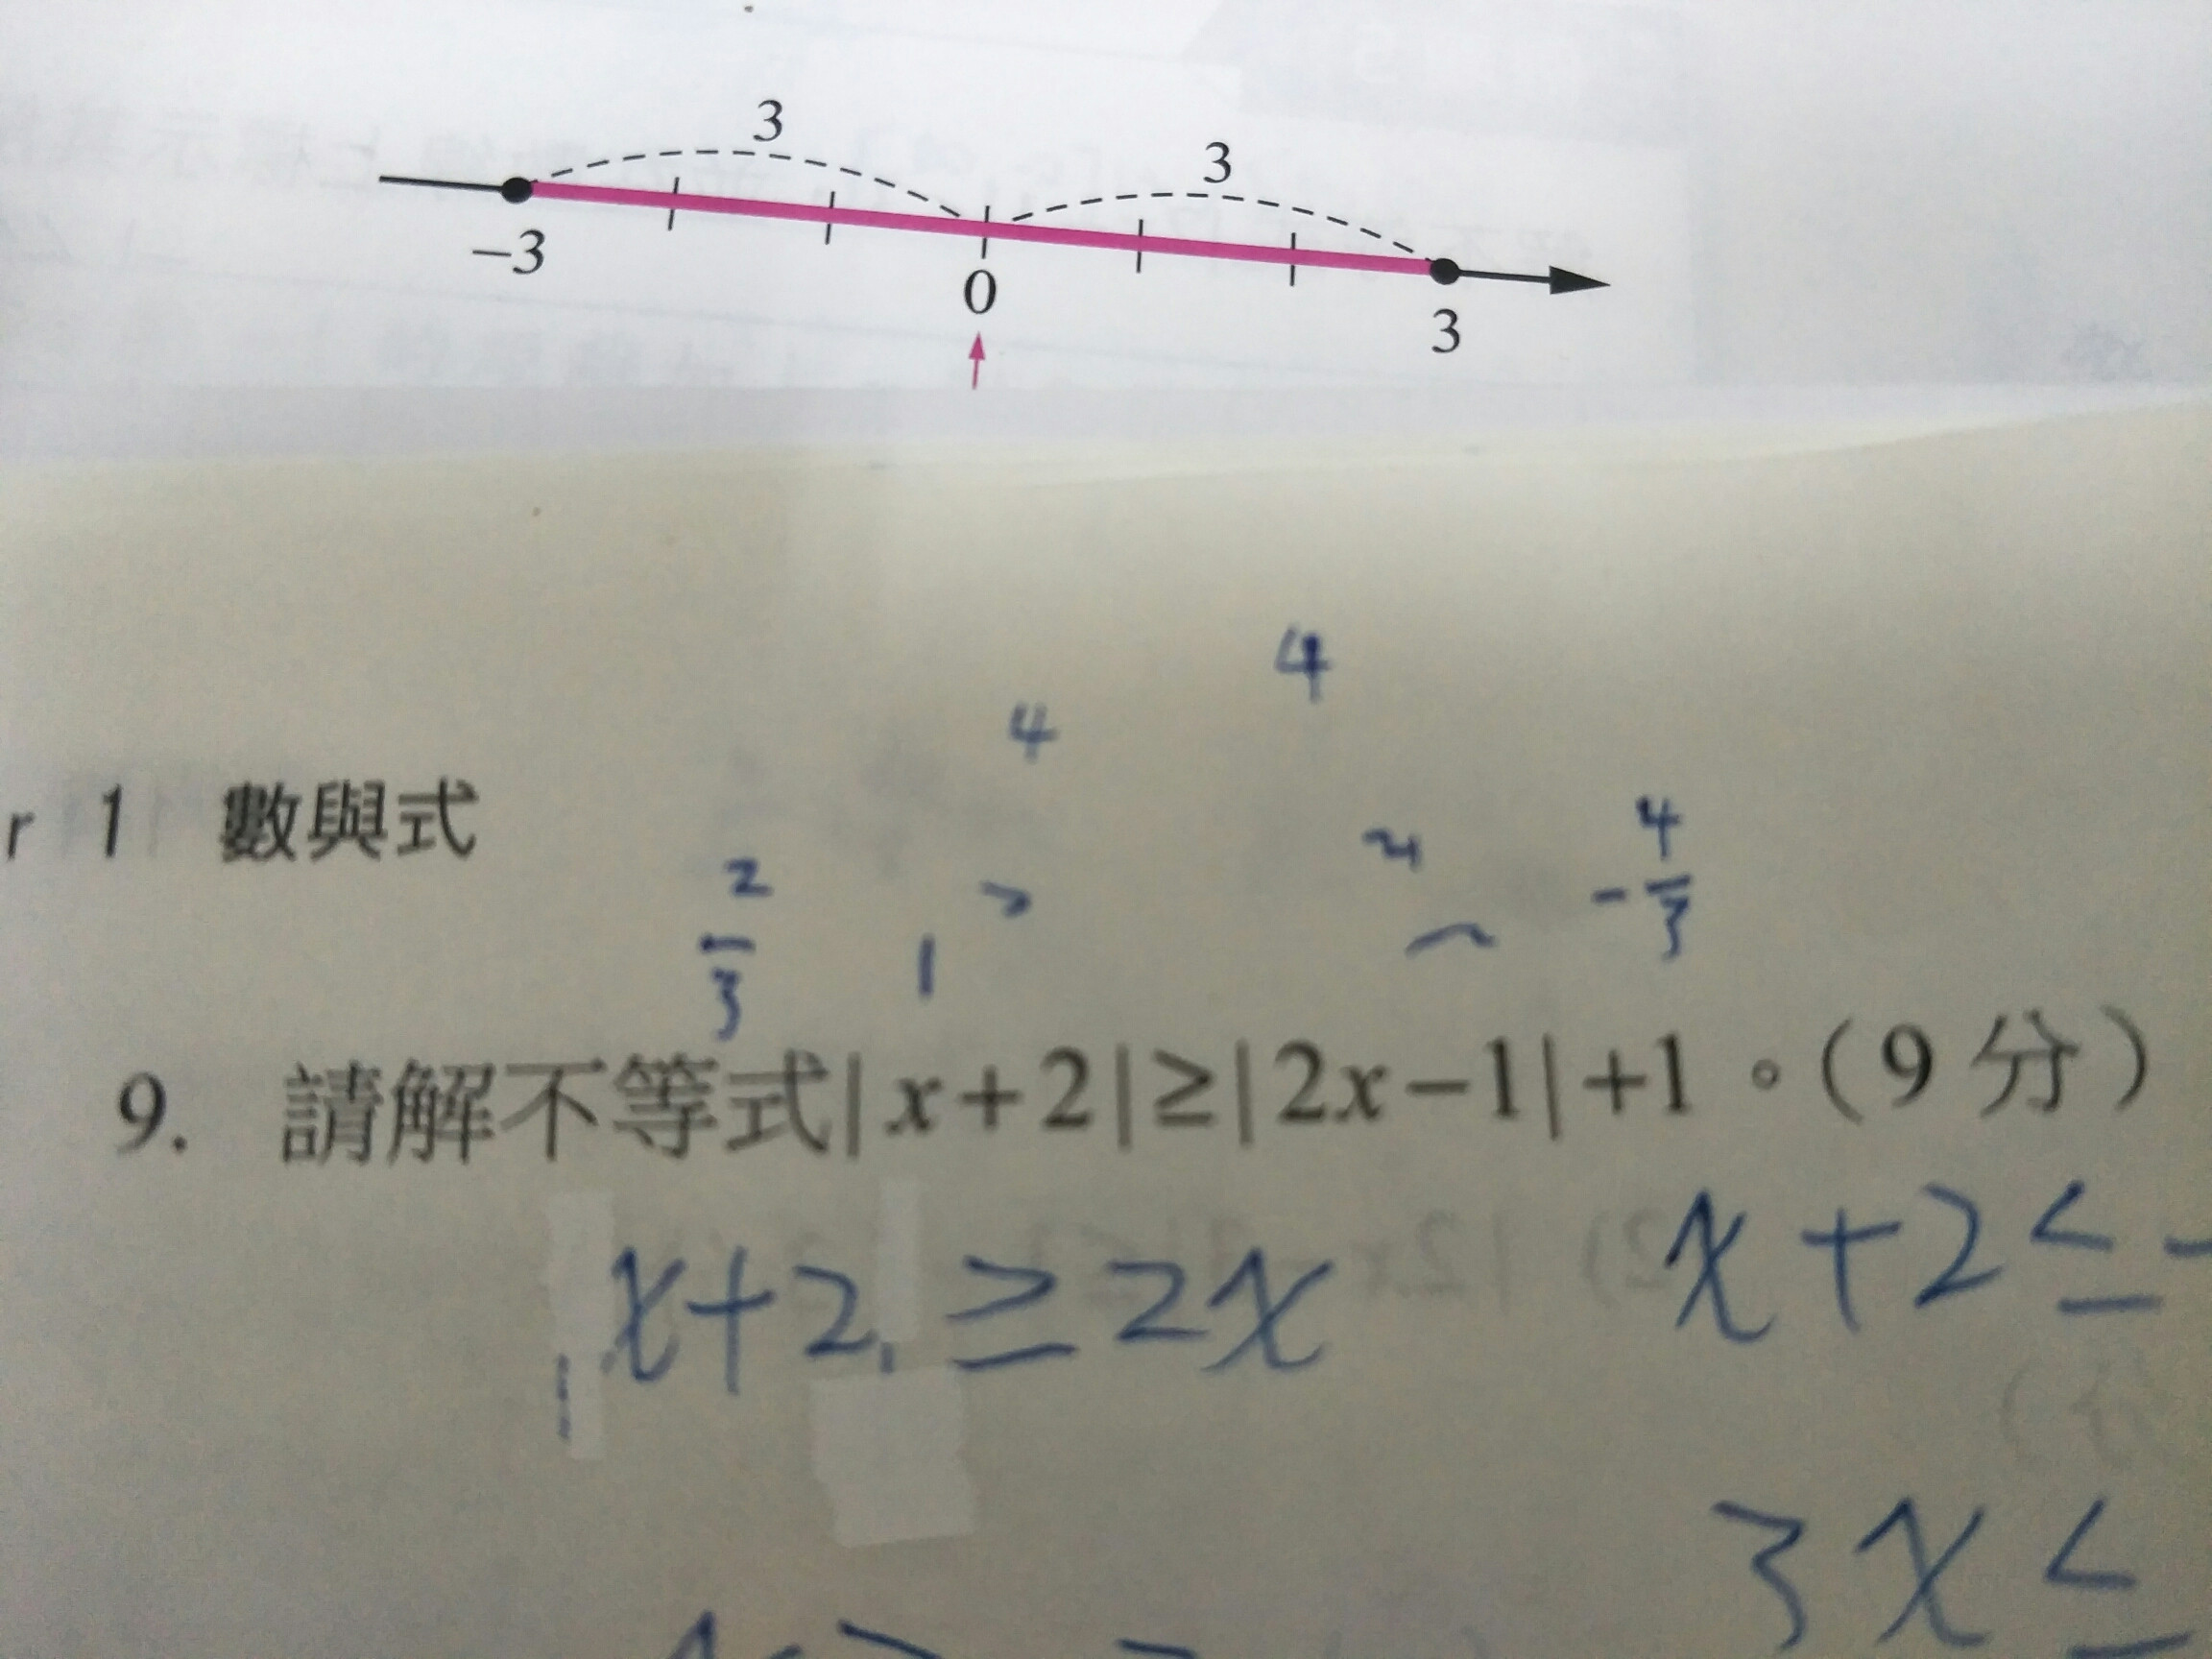 3
3
-3
0
3
4
4
r 1 數與式
2/3
1
-4/3
9. 請解不等式|x+2|≥|2x-1|+1。(9分)
x+2≥2x
x+2≤-
3x≤